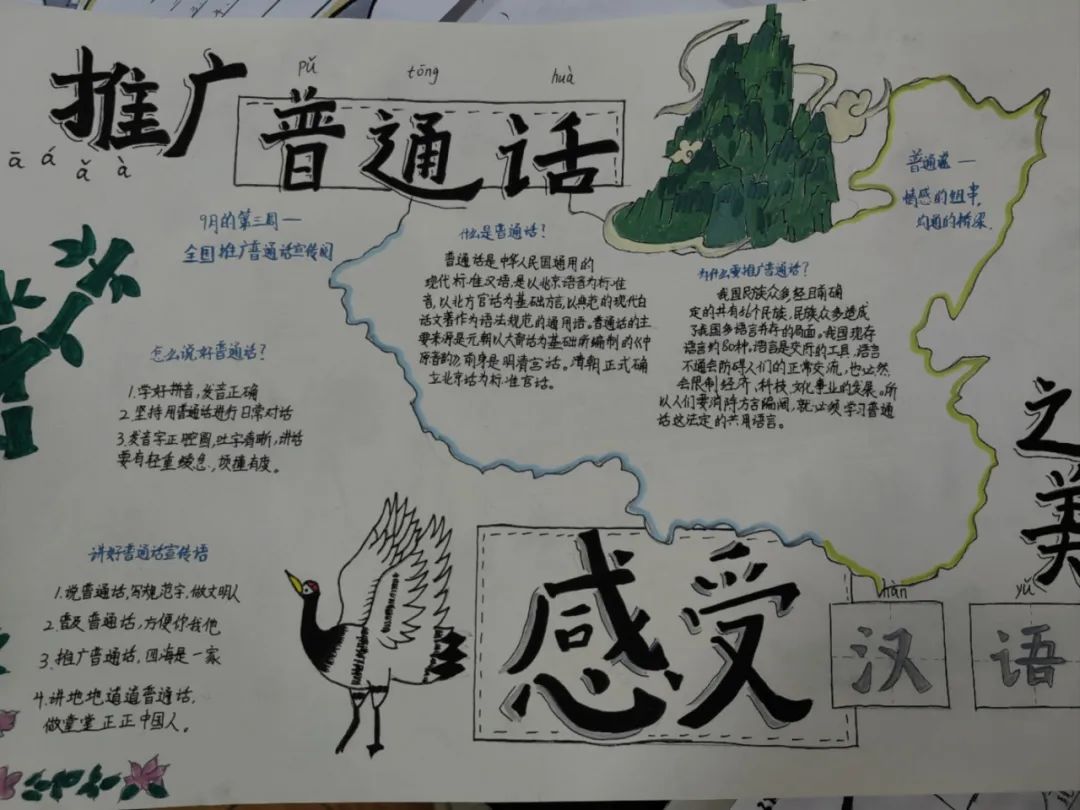 pǔ tōng huà
推广普通话
ā á ǎ à
9月的第三周一
全国推广普通话宣传周
什么是普通话?
普通话是中华人民国通用的
现代标准汉语,是以北京语音为标准
音,以北方官话为基础方言,以典范的现代白
话文著作为语法规范的通用语。普通话的主
要来源是元朝以大都话为基础所编制的《中
原音韵》,前身是明清官话。清朝正式确
立北京话为标准官话。
为什么要推广普通话?
我国民族众多,经
定的共有56个民族,民族众多造成
了我国多语言并存的局面。我国现存
语言约80种。语言是交际的工具,语言
不通会防碍人们的正常交流,也必然
会限制经济,科技,文化事业的发展。所
以人们要消除方言隔阂,就必须学习普通
话这法定的共用语言。
普通话一
情感的纽带,
沟通的桥梁.
怎么说好普通话?
1.学好拼音,发音正确
2.坚持用普通话进行日常对话
3.发音字正腔圆,吐字清晰,讲话
要有轻重缓急,顿挫有度。
讲好普通话宣传语
1.说普通话,写规范字,做文明人
2.普及普通话,方便你我他
3.推广普通话,四海是一家
4.讲地地道道普通话,
做堂堂正正中国人。
感受
hàn yǔ
汉语
之美